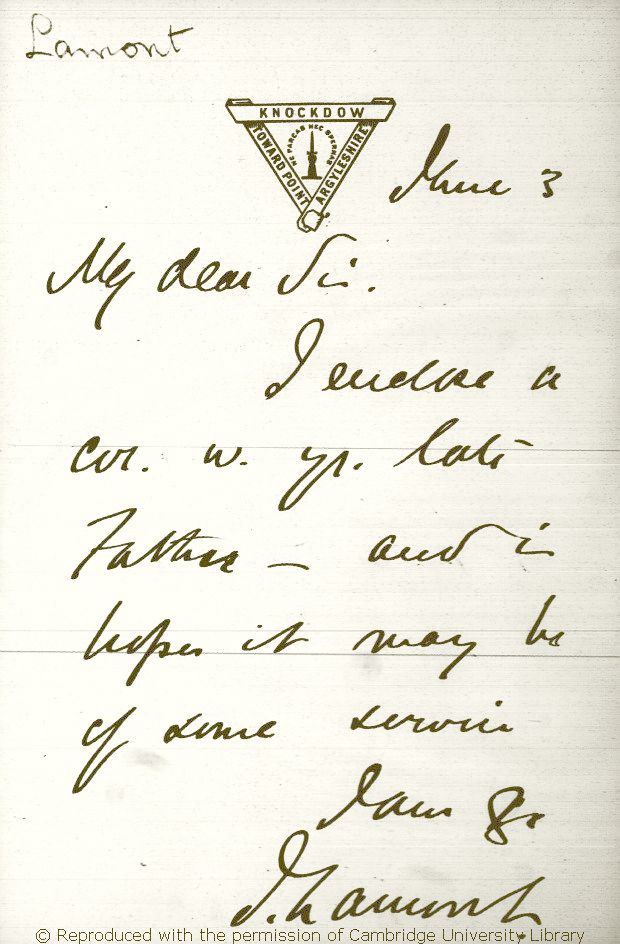 Lamont
KNOCKDOW
TOWARD POINT
NE PARCAS NEC SPERNAS
ARGYLESHIRE
June 3
My dear Sir.
I enclose a
cor. w. yr. late
Father – and in
hopes it may be
of some service
I am &c
J. Lamont
© Reproduced with the permission of Cambridge University Library